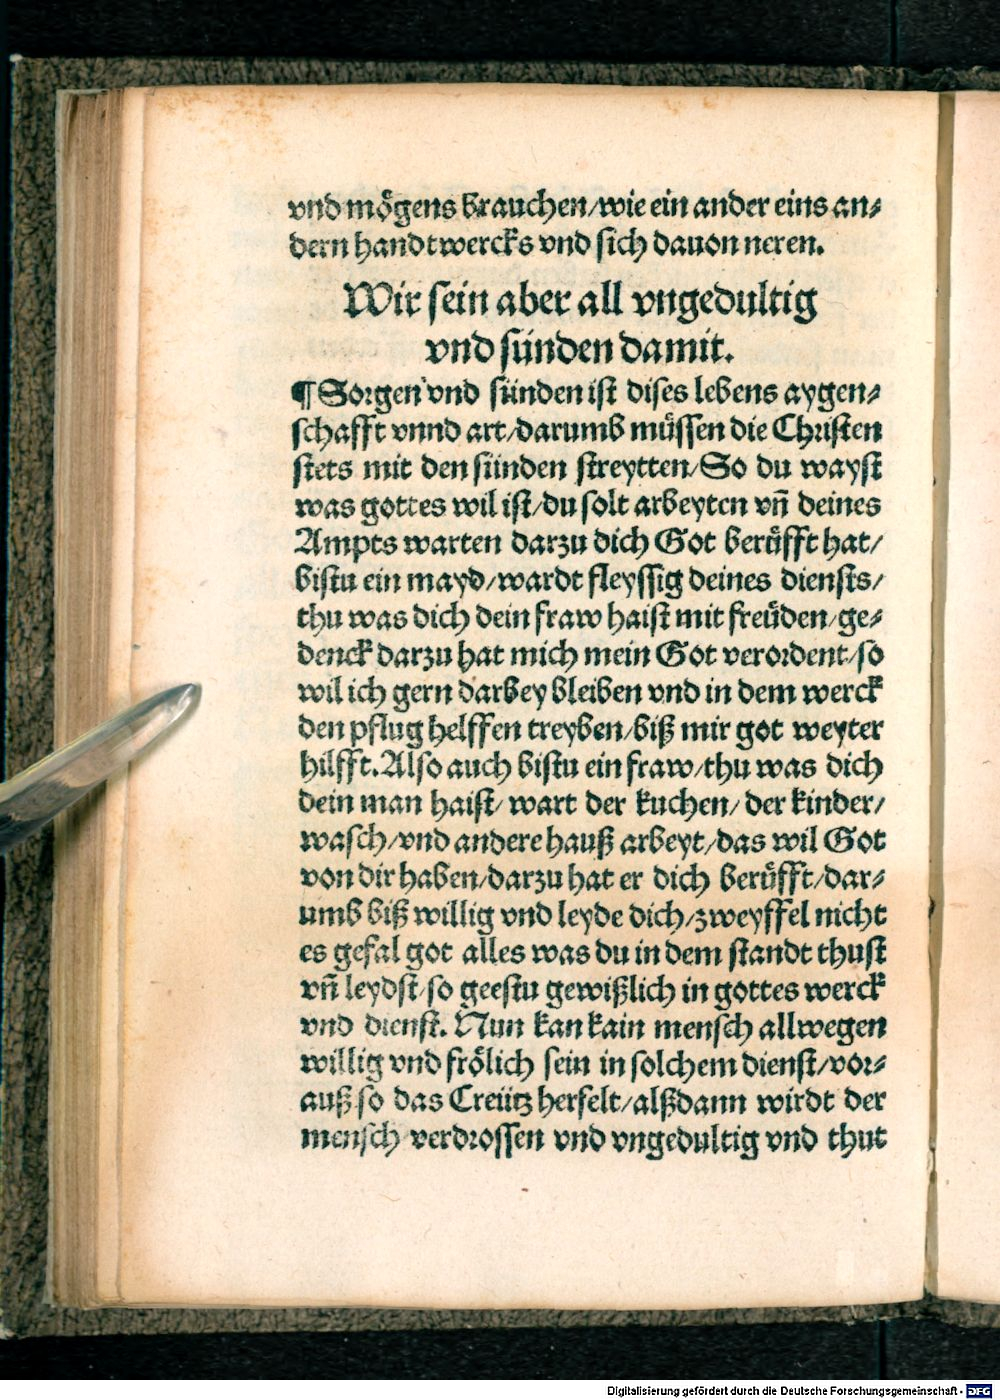 vnd mögens brauchen/wie ein ander eins an⸗
dern handtwercks vnd sich dauon neren.
Wir sein aber all vngedultig
vnd sünden damit.
¶ Sorgen vnd sünden ist dises lebens aygen⸗
schafft vnnd art/darumb müssen die Christen
stets mit den sünden streytten/So du wayst
was gottes wil ist/du solt arbeyten vñ deines
Ampts warten darzu dich Got berüfft hat/
bistu ein mayd/wardt fleyssig deines diensts/
thu was dich dein fraw haist mit freüden/ge⸗
denck darzu hat mich mein Got verordent/so
wil ich gern darbey bleiben vnd in dem werck
den pflug helffen treyben/biß mir got weyter
hilfft. Also auch bistu ein fraw/thu was dich
dein man haist/ wart der kuchen/ der kinder/
wasch/vnd andere hauß arbeyt/das wil Got
von dir haben/darzu hat er dich berüfft/dar⸗
umb biß willig vnd leyde dich/zweyffel nicht
es gefal got alles was du in dem standt thust
vñ leydst/so geestu gewißlich in gottes werck
vnd dienst. Nun kan kain mensch allwegen
willig vnd frölich sein in solchem dienst/vor⸗
auß so das Creütz herfelt/alßdann wirdt der
mensch verdrossen vnd vngedultig vnd thut
Digitalisierung gefördert durch die Deutsche Forschungsgemeinschaft - DFG